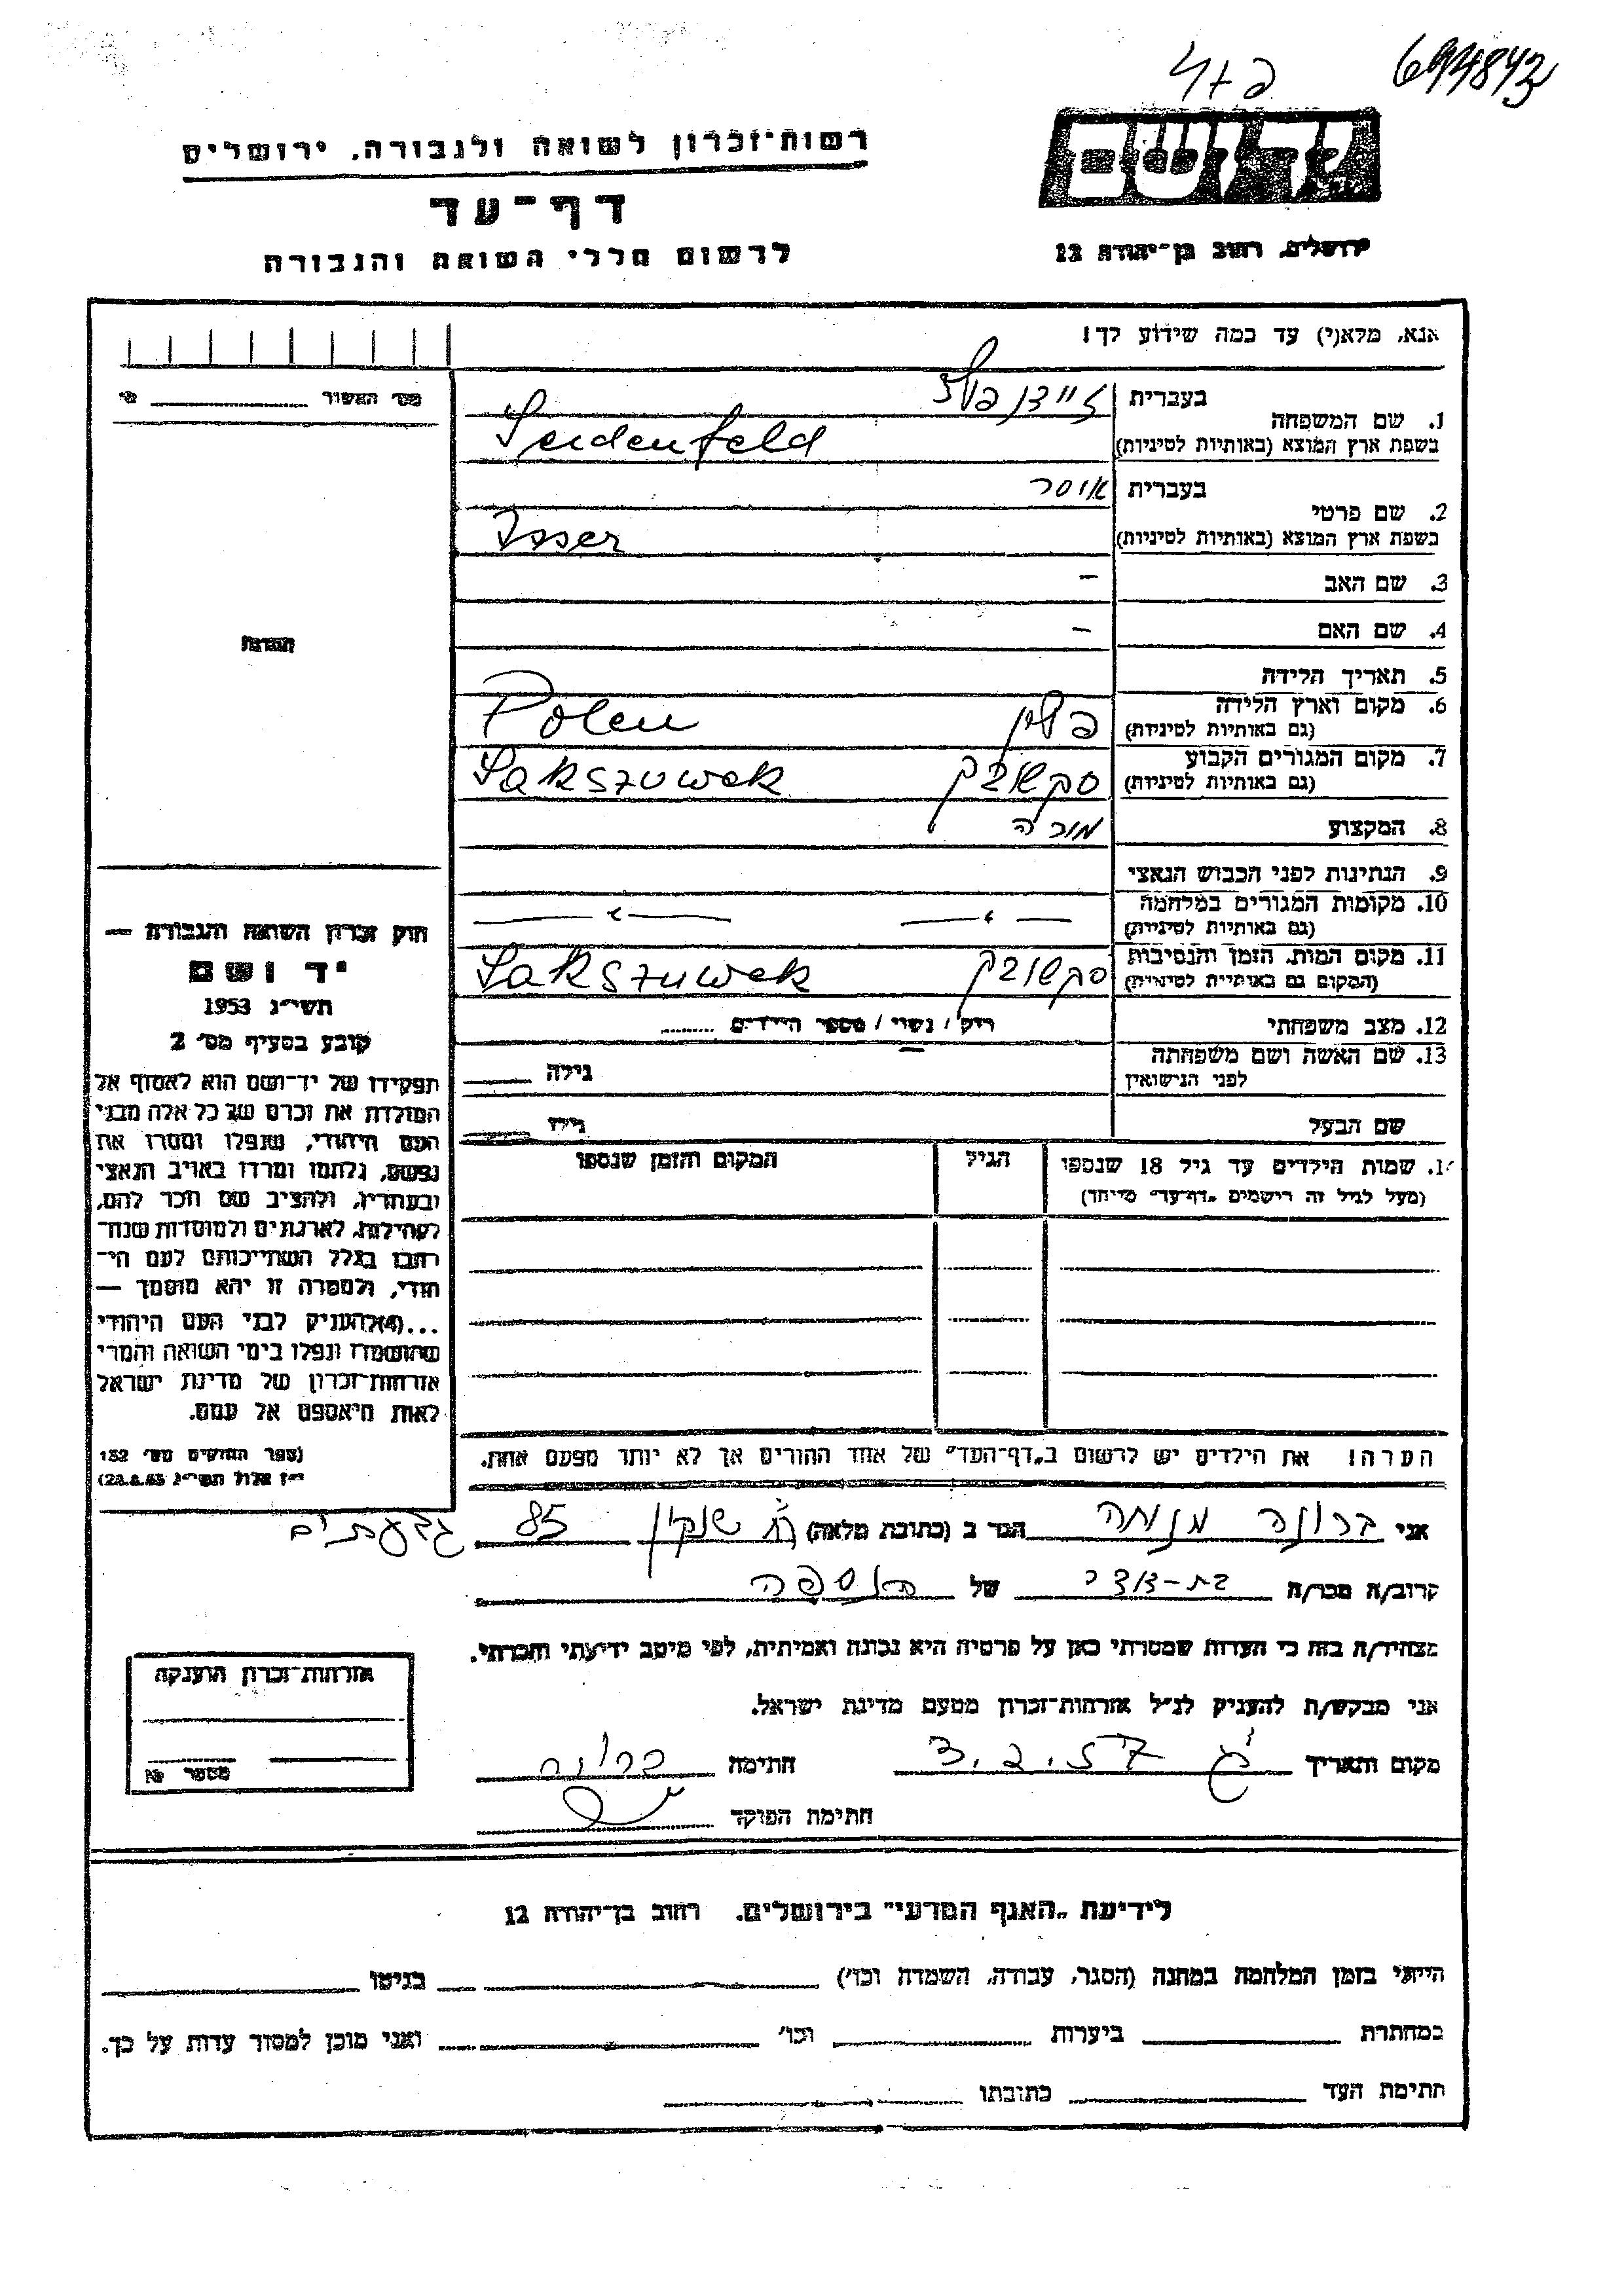 694843
רשות־זכרון לשואה ולגבורה. ירושלים
יד ושם
דף־עד
ירושלים, רחוב בן־יהודה 12
לרשום חללי השואה והגבורה
אנא, מלא(י) עד כמה שידוע לך!
בעברית זיידנפלד
1. שם המשפחה
בשפת ארץ המוצא (באותיות לטיניות) Seidenfeld
בעברית איסר
2. שם פרטי
בשפת ארץ המוצא (באותיות לטיניות) Isser
3. שם האב –
4. שם האם –
5. תאריך הלידה
6. מקום וארץ הלידה
(גם באותיות לטיניות) פולין Polen
7. מקום המגורים הקבוע
(גם באותיות לטיניות) סקשובק Sakszuwek
8. המקצוע מורה
9. הנתינות לפני הכבוש הנאצי
10. מקומות המגורים במלחמה
(גם באותיות לטיניות) — " — — " —
11. מקום המות. הזמן והנסיבות
(המקום גם באותיות לטיניות) סקשובק Sakszuwek
12. מצב משפחתי רוק / נשוי / מספר הילדים
13. שם האשה ושם משפחתה
לפני הנישואין גילה
שם הבעל גילו
שמות הילדים עד גיל 18 שנספו הגיל המקום והזמן שנספו
(מעל לגיל זה רישמים „דף־עד” מיוחד)
הערה! את הילדים יש לרשום ב„דף־העד” של אחד ההורים אך לא יותר מפעם אחת.
מס׳ האשור
הערות
חוק זכרון השואה והגבורה —
יד ושם
תשי״ג 1953
קובע בסעיף מס׳ 2
תפקידו של יד־ושם הוא לאסוף אל
המולדת את זכרם של כל אלה מבני
העם היהודי, שנפלו ומסרו את
נפשם, נלחמו ומרדו באויב הנאצי
ובעוזריו, ולהציב שם וזכר להם,
לקהילות, לארגונים ולמוסדות שנח־
רבו בגלל השתייכותם לעם הי־
הודי, ולמטרה זו יהא מוסמך —
...(4) להעניק לבני העם היהודי
שהושמדו ונפלו בימי השואה והמרי
אזרחות־זכרון של מדינת ישראל
לאות היאספם אל עמם.
(ספר החוקים מס׳ 132
אלול תשי״ג
אני ברונה מנוחה הגר ב (כתובת מלאה) שנקין 85 גבעתיים
קרוב/ה מכר/ה בת-דודה של הנספה
מצהיר/ה בזה כי העדות שמסרתי כאן על פרטיה היא נכונה ואמיתית, לפי מיטב ידיעתי והכרתי.
אני מבקש/ת להעניק לנ״ל אזרחות־זכרון מטעם מדינת ישראל.
מקום ותאריך 3.2.57 חתימה ברונה
חתימת הפוקד
אזרחות־זכרון הוענקה
מספר
לידיעת „האגף המדעי” בירושלים. רחוב בן־יהודה 12
הייתי בזמן המלחמה במחנה (הסגר, עבודה, השמדה וכו׳) בגיטו
במחתרת ביערות וכו׳ ואני מוכן למסור עדות על כך.
חתימת העד כתובתו